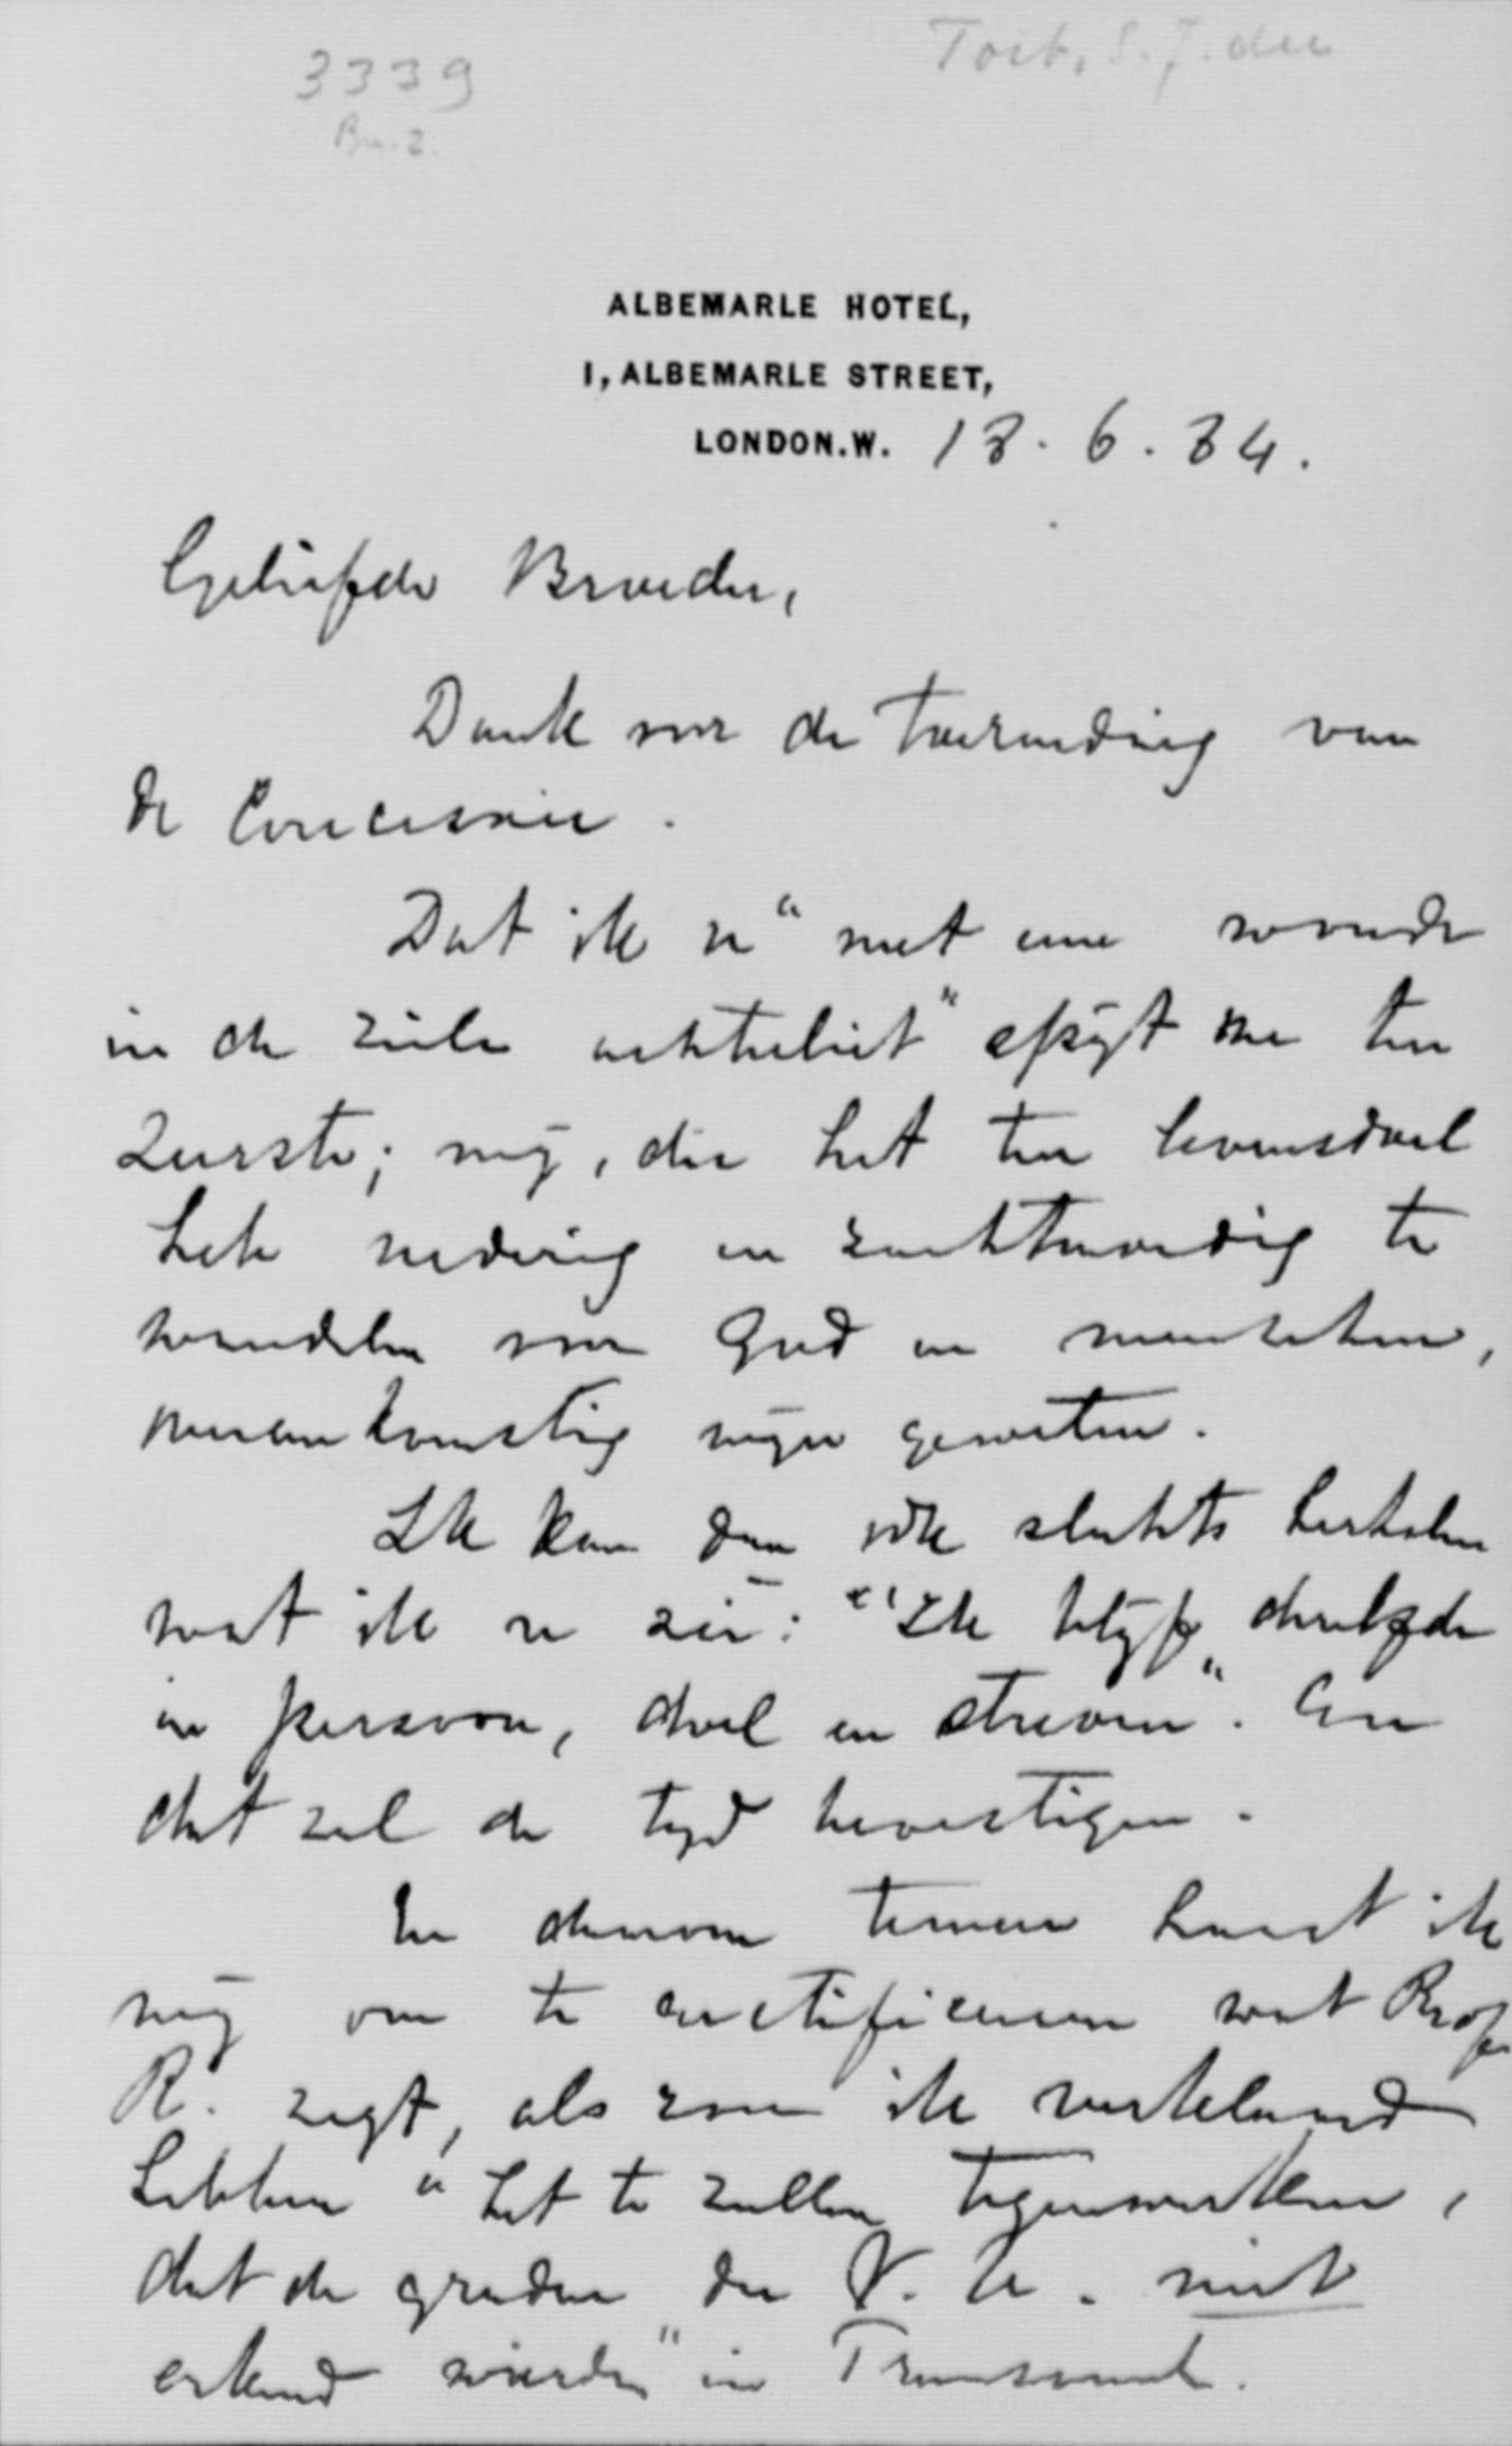 3339
Br. 2.
Toit, S. J. du
ALBEMARLE HOTEL,
1, ALBEMARLE STREET,
LONDON. W. 18. 6. 84.
Geliefde Broeder,
Dank voor de toezending van
de Concessie.
Dat ik u "met eene wonde
in de ziele achterliet" spijt me ten
zeerste; mij, die het ten levensdoel
heb nederig en zachtmoedig te
wandelen voor God en menschen,
mijn geweten.
Ik kan dan ook slechts herhalen
wat ik u zei: "Ik blijf dezelfde
in persoon, doel en streven". En
dat zal de tijd bevestigen.
En daarom tevens haast ik
mij om te rectificeeren wat Prof
R. zegt, als zou ik verklaard
hebben "het te zullen tegenwerken,
dat de graden der V. U. niet
erkend worden" in Transvaal.